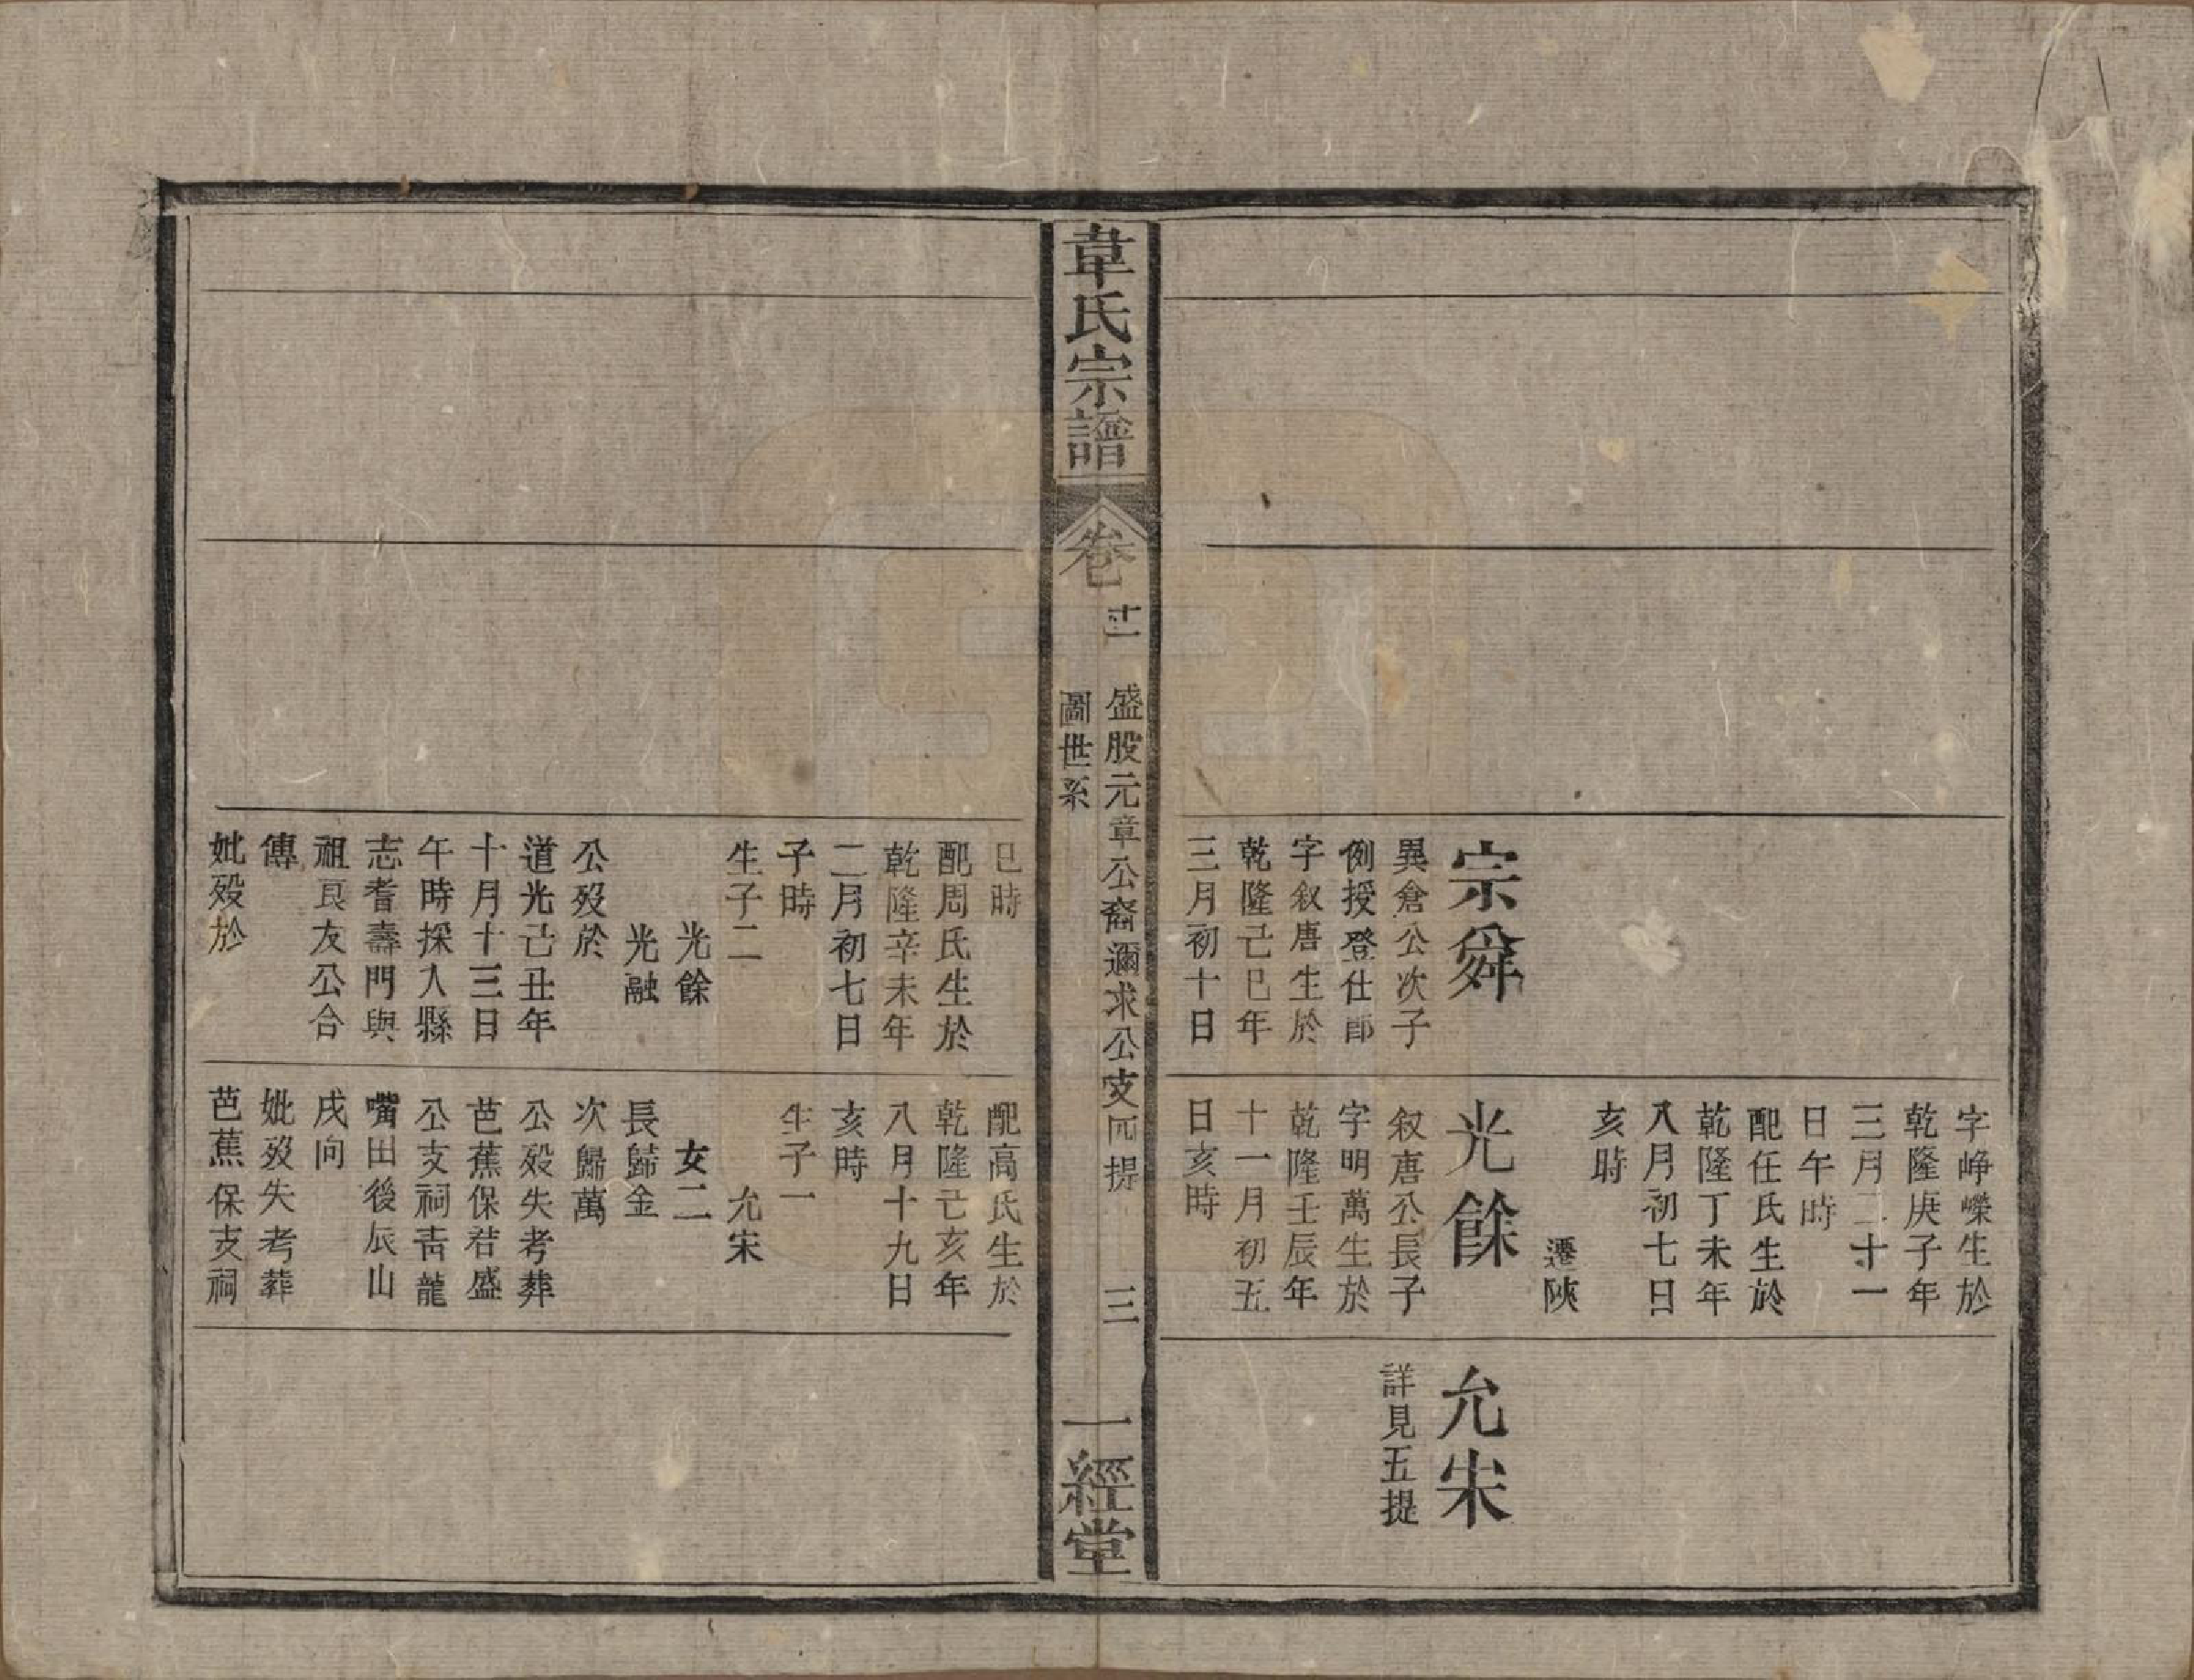 字崢嶸生於
乾隆庚子年
三月二十一
日午時
配任氏生於
乾隆丁未年
八月初七日
亥時
遷陝
宗舜
異倉公次子
例授登仕郎
字叙唐生於
乾隆己巳年
三月初十日
光餘
叙唐公長子
字明萬生於
乾隆壬辰年
十一月初五
日亥時
允宋
詳見五提
韋氏宗譜
卷
盛股元章公裔邇求公支四提
圖世系
三
一經堂
巳時
配周氏生於
乾隆辛未年
二月初七日
子時
生子二
光餘
光融
公殁於
道光己丑年
十月十三日
午時採入縣
志耆壽門與
祖良友公合
傳
妣殁於
配高氏生於
乾隆己亥年
八月十九日
亥時
生子一
允宋
女二
長歸金
次歸萬
公殁失考葬
芭蕉保若盛
公支祠靑龍
嘴田後辰山
戌向
妣殁失考葬
芭蕉保支祠